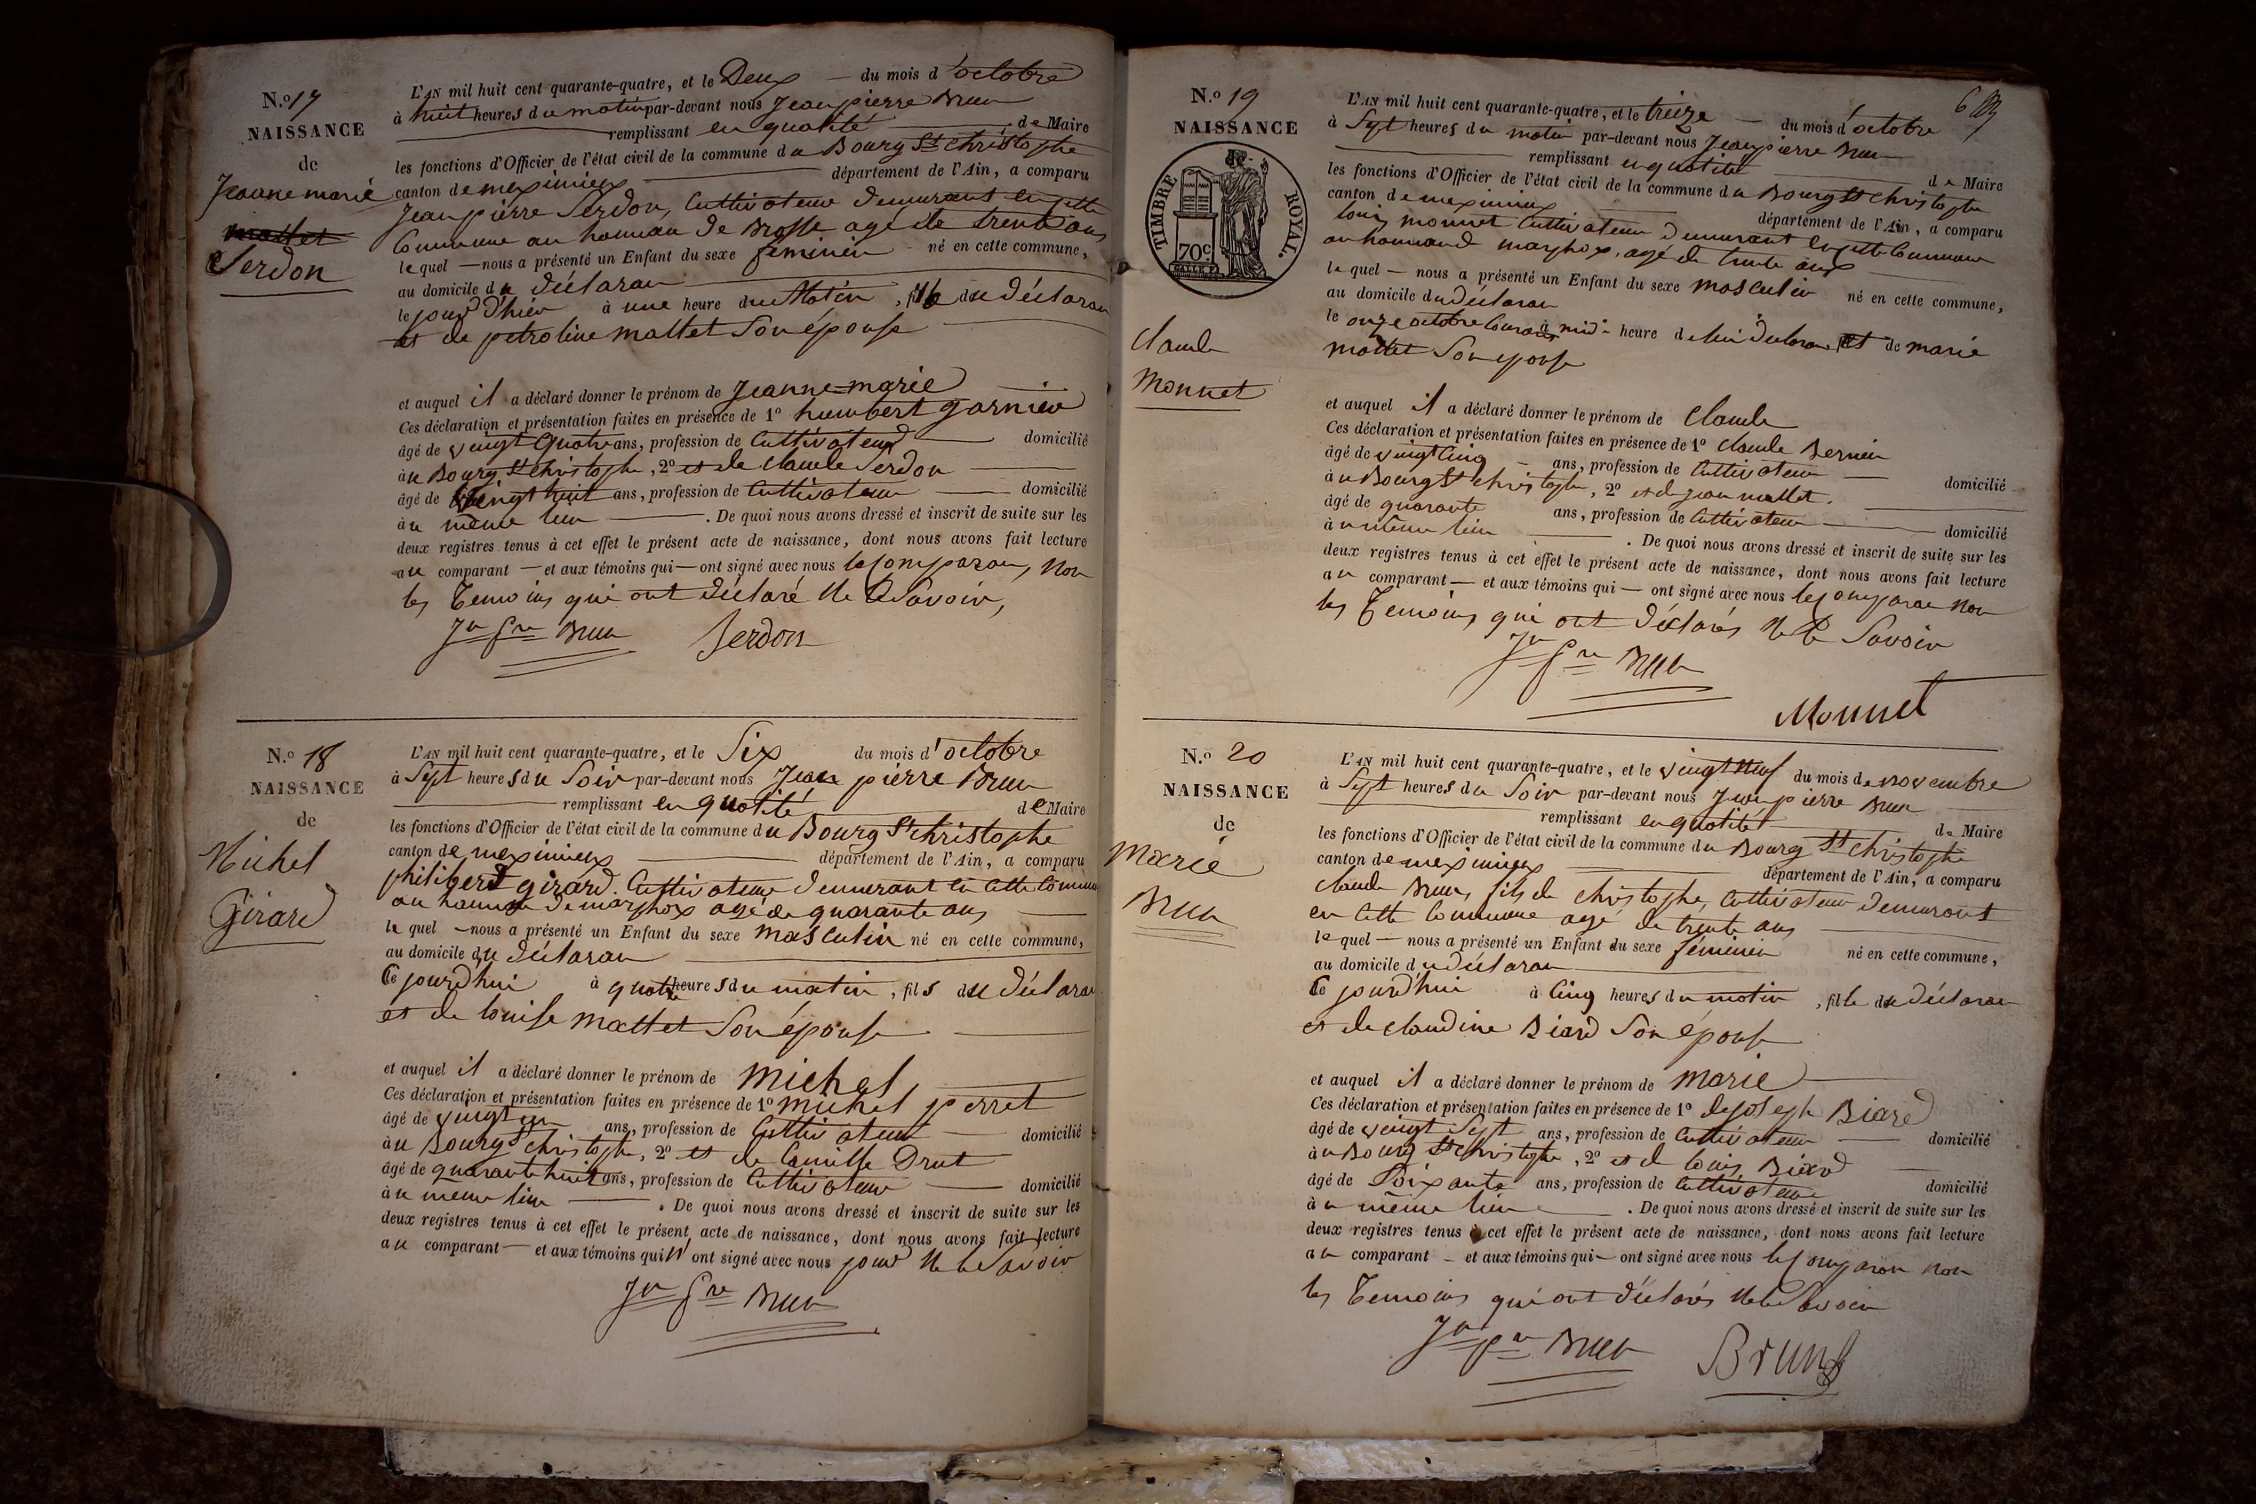 N.o 17
NAISSANCE
de
Jeanne marie
mallet
Serdon
L'AN mil huit cent quarante-quatre, et le Deux — du mois d'octobre
à huit heures du matin par-devant nous Jean pierre Brun
remplissant en qualité de Maire
les fonctions d'Officier de l'état civil de la commune du Bourg St christophe
canton de meximieux département de l'Ain, a comparu
Jean pierre Serdon, Cultivateur Demeurant en cette
Commune au hameau de Brosse agé de trente ans
lequel — nous a présenté un Enfant du sexe féminin né en cette commune,
au domicile du déclaran
le jour d'hier à une heure du Matin, fille du déclaran
et de petroline mallet Son épouse
et auquel il a déclaré donner le prénom de Jeanne-marie
Ces déclaration et présentation faites en présence de 1o humbert garnier
âgé de vingt quatre ans, profession de Cultivateur domicilié
au Bourg St christophe, 2o et de claude Serdon
âgé de vingt huit ans, profession de Cultivateur domicilié
au même lieu. De quoi nous avons dressé et inscrit de suite sur les
deux registres tenus à cet effet le présent acte de naissance, dont nous avons fait lecture
au comparant — et aux témoins qui — ont signé avec nous le Comparan, Non
les Temoins qui ont déclaré Ne le Savoir,
Jn Pre Brun Serdon
N.o 18
NAISSANCE
de
Michel
Girard
L'AN mil huit cent quarante-quatre, et le Six du mois d'octobre
à Sept heures du Soir par-devant nous Jean pierre Brun
remplissant en qualité de Maire
les fonctions d'Officier de l'état civil de la commune du Bourg St christophe
canton de meximieux département de l'Ain, a comparu
philibert girard. Cultivateur demeurant en cette Commune
au hameau de marphoz agé de quarante ans
lequel — nous a présenté un Enfant du sexe masculin né en cette commune,
au domicile du déclaran
Ce jourd'hui à quatre heures du matin, fils du déclaran
et de louise mallet Son épouse
et auquel il a déclaré donner le prénom de michel
Ces déclaration et présentation faites en présence de 1o michel perret
âgé de vingt un ans, profession de Cultivateur domicilié
au Bourg St christophe, 2o et de Camille Drut
âgé de quarante huit ans, profession de Cultivateur domicilié
au meme lieu. De quoi nous avons dressé et inscrit de suite sur les
deux registres tenus à cet effet le présent acte de naissance, dont nous avons fait lecture
au comparant — et aux témoins qui n'ont signé avec nous pour Ne le Savoir
Jn Pre Brun
6
N.o 19
NAISSANCE
TIMBRE ROYAL.
70c
Claude
Monnet
L'AN mil huit cent quarante-quatre, et le treize — du mois d'octobre
à Sept heures du matin par-devant nous Jean pierre Brun
remplissant en qualité de Maire
les fonctions d'Officier de l'état civil de la commune du Bourg St christophe
canton de meximieux département de l'Ain, a comparu
louis monnet Cultivateur Demeurant en cette Commune
au hameau de marphoz, agé de trente ans
lequel — nous a présenté un Enfant du sexe masculin né en cette commune,
au domicile du déclaran
le onze octobre Courant à midi heure de lui déclaran, et de marie
mallet Son epouse
et auquel il a déclaré donner le prénom de Claude
Ces déclaration et présentation faites en présence de 1o claude Bernin
âgé de vingt Cinq ans, profession de Cultivateur domicilié
au Bourg St christophe, 2o et de jean mallet.
âgé de quarante ans, profession de Cultivateur domicilié
au même lieu. De quoi nous avons dressé et inscrit de suite sur les
deux registres tenus à cet effet le présent acte de naissance, dont nous avons fait lecture
au comparant — et aux témoins qui — ont signé avec nous le Comparan Non
les Temoins qui ont déclarés Ne le Savoir
Jn Pre Brun
Monnet
N.o 20
NAISSANCE
de
Marie
Brun
L'AN mil huit cent quarante-quatre, et le vingt Neuf du mois de novembre
à Sept heures du Soir par-devant nous Jean pierre Brun
remplissant en qualité de Maire
les fonctions d'Officier de l'état civil de la commune du Bourg St christophe
canton de meximieux département de l'Ain, a comparu
claude Brun, fils de christophe, Cultivateur Demeurant
en cette Commune agé de trente ans
lequel — nous a présenté un Enfant du sexe féminin né en cette commune,
au domicile du déclaran
Ce jourd'hui à Cinq heures du matin, fille du déclaran
et de claudine Biard Son épouse
et auquel il a déclaré donner le prénom de marie
Ces déclaration et présentation faites en présence de 1o de joseph Biard
âgé de vingt Sept ans, profession de Cultivateur domicilié
au Bourg St christophe, 2o et de louis Biard
âgé de Soixante ans, profession de Cultivateur domicilié
au même lieu. De quoi nous avons dressé et inscrit de suite sur les
deux registres tenus à cet effet le présent acte de naissance, dont nous avons fait lecture
au comparant — et aux témoins qui — ont signé avec nous le Comparan Non
les Temoins qui ont déclarés Ne le Savoir
Jn Pre Brun Brun